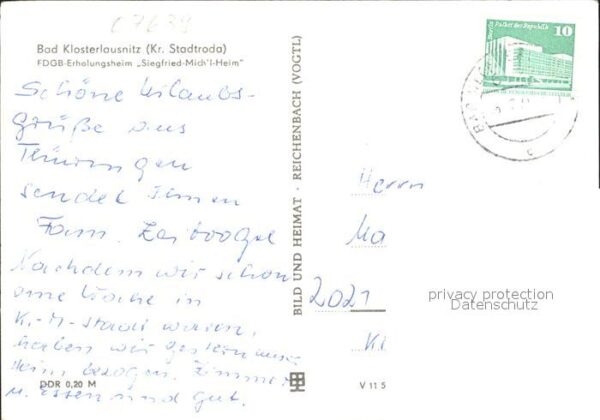 07639
Bad Klosterlausnitz (Kr. Stadtroda)
FDGB-Erholungsheim „Siegfried-Mich'l-Heim"
Schöne Urlaubs-
grüße aus
Thüringen
sendet Ihnen
Fam.
Nachdem wir schon
eine Woche in
K.-M.-Stadt waren,
haben wir gestern unser
Heim bezogen. Zimmer
u. Essen sind gut.
DDR 0,20 M
BILD UND HEIMAT · REICHENBACH (VOGTL)
V 11 5
Palast der Republik
10
Herrn
Ma
2021
Ki
privacy protection
Datenschutz